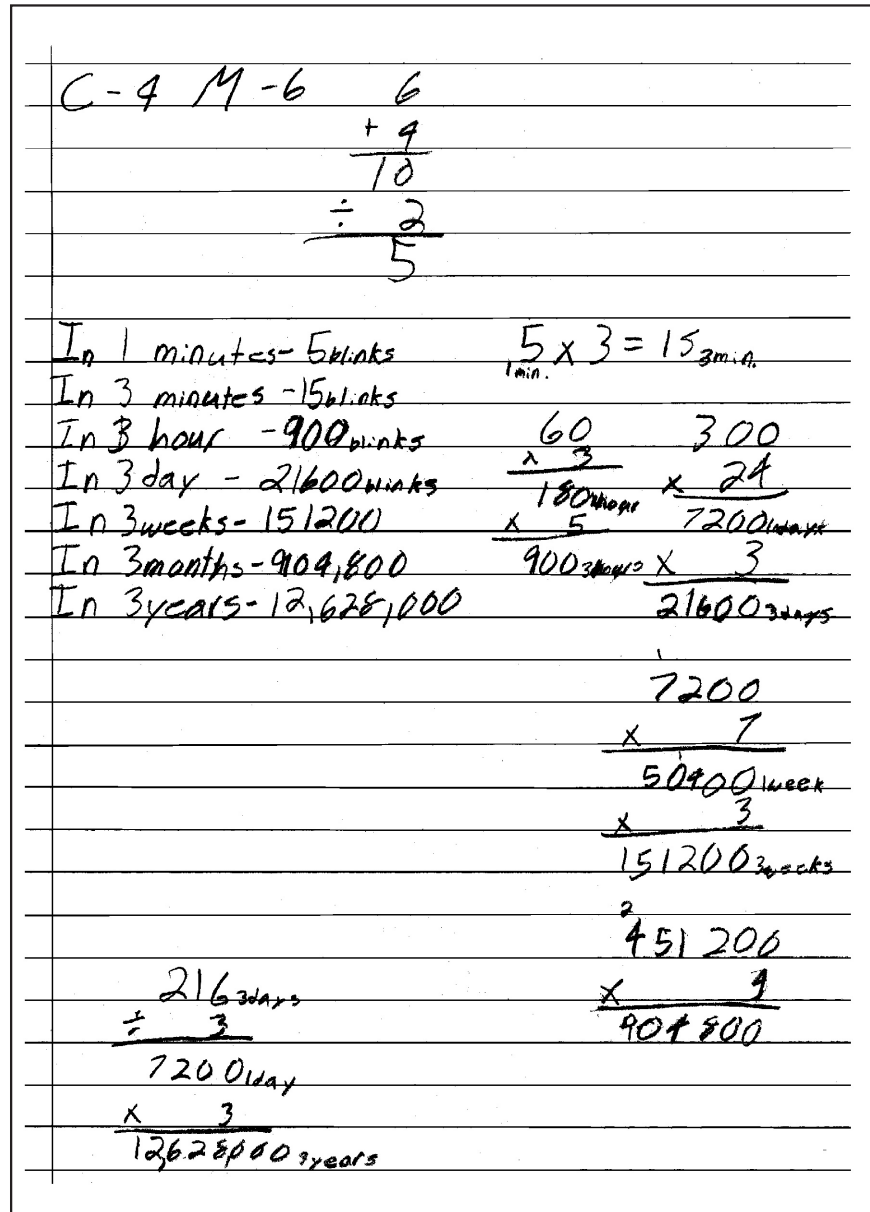 C-4 M-6 6
+ 4
10
÷ 2
5
In 1 minutes- 5 blinks
In 3 minutes -15 blinks
In 3 hour -900 blinks
In 3 day - 21600 blinks
In 3 weeks- 151200
In 3 months- 904,800
In 3 years- 12,628,000
5 1min. x 3 = 15 3min.
60
x 3
180
x 5
900 3hours
300
x 24
7200 1day
x 3
21600 3days
1
7200
x 7
1
50400 1week
x 3
151200 3weeks
2
451200
x 4
904800
216 3days
÷ 3
7200 1day
x 3
12,628,000 3years